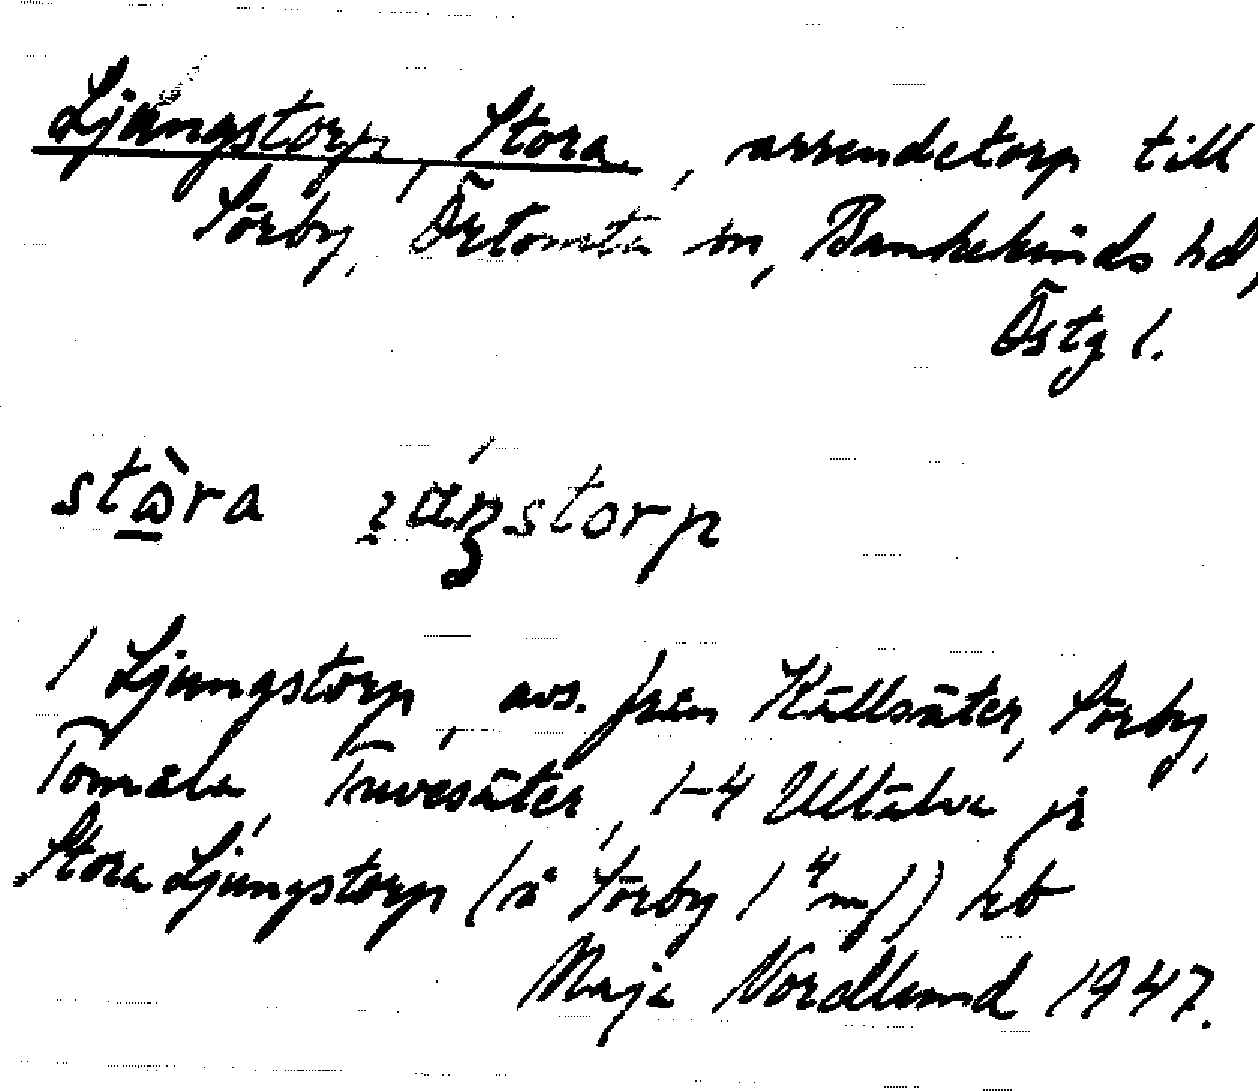 Ljungstorp, Stora, arrendetorp till
Sörby, Örtomta sn, Bankekinds hd,
Östg l.
stɷ̀ra ɟúŋstorp
1 Ljungstorp, avs. från Källsäter, Sörby,
Tomåla, Truvesäter, 1-4 Ullälva jr
Stora Ljungstorp (å Sörby 1 4/ mf) hb
Maja Nordlund 1947.